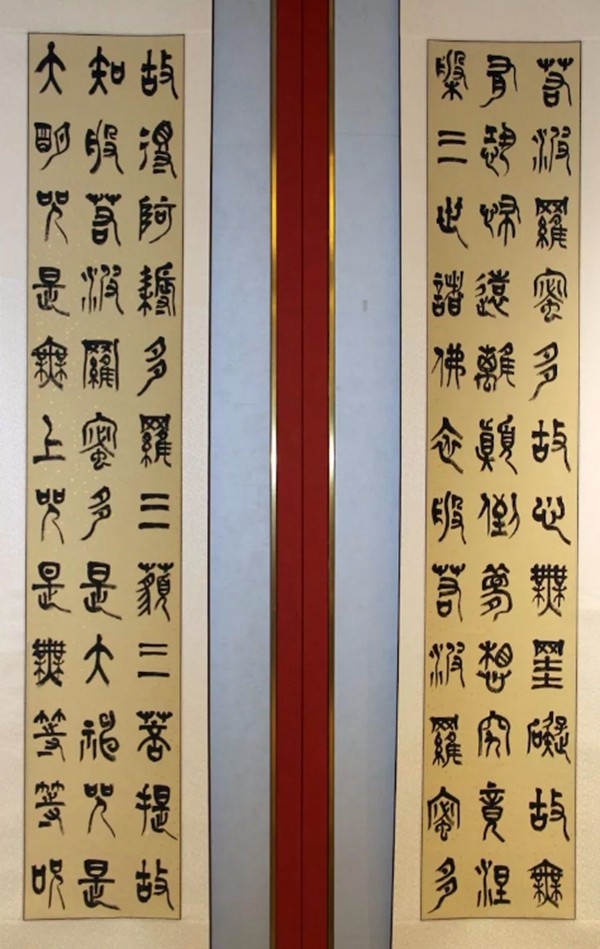 若波羅蜜多故心無罣礙故無
有恐怖遠離顛倒夢想究竟涅
槃三世諸佛依般若波羅蜜多
故得阿耨多羅三藐三菩提故
知般若波羅蜜多是大神咒是
大明咒是無上咒是無等等咒